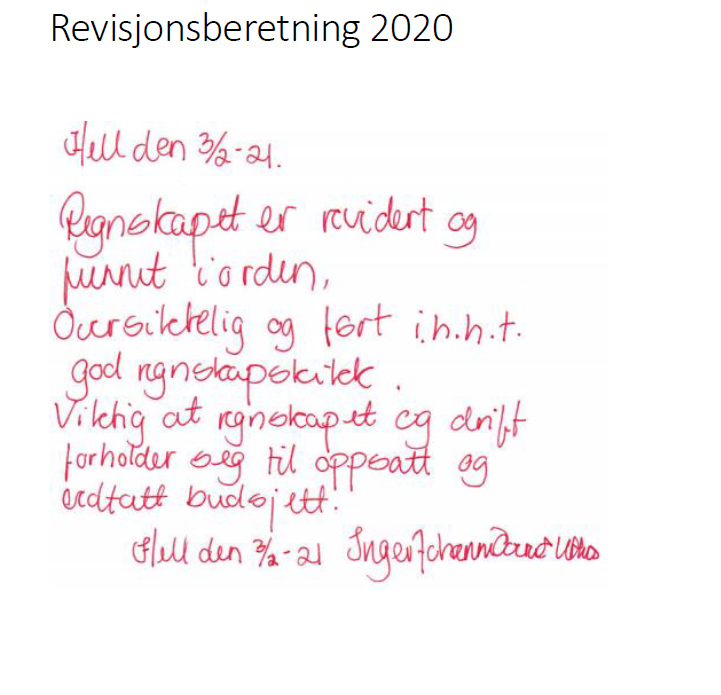 Revisjonsberetning 2020
Hell den 3/2-21.
Regnskapet er revidert og
funnet i orden,
Oversiktelig og ført i.h.h.t.
god regnskapskikk.
Viktig at regnskapet og drift
forholder seg til oppsatt og
vedtatt budsjett.
Hell den 3/2-21 Inger Johanne